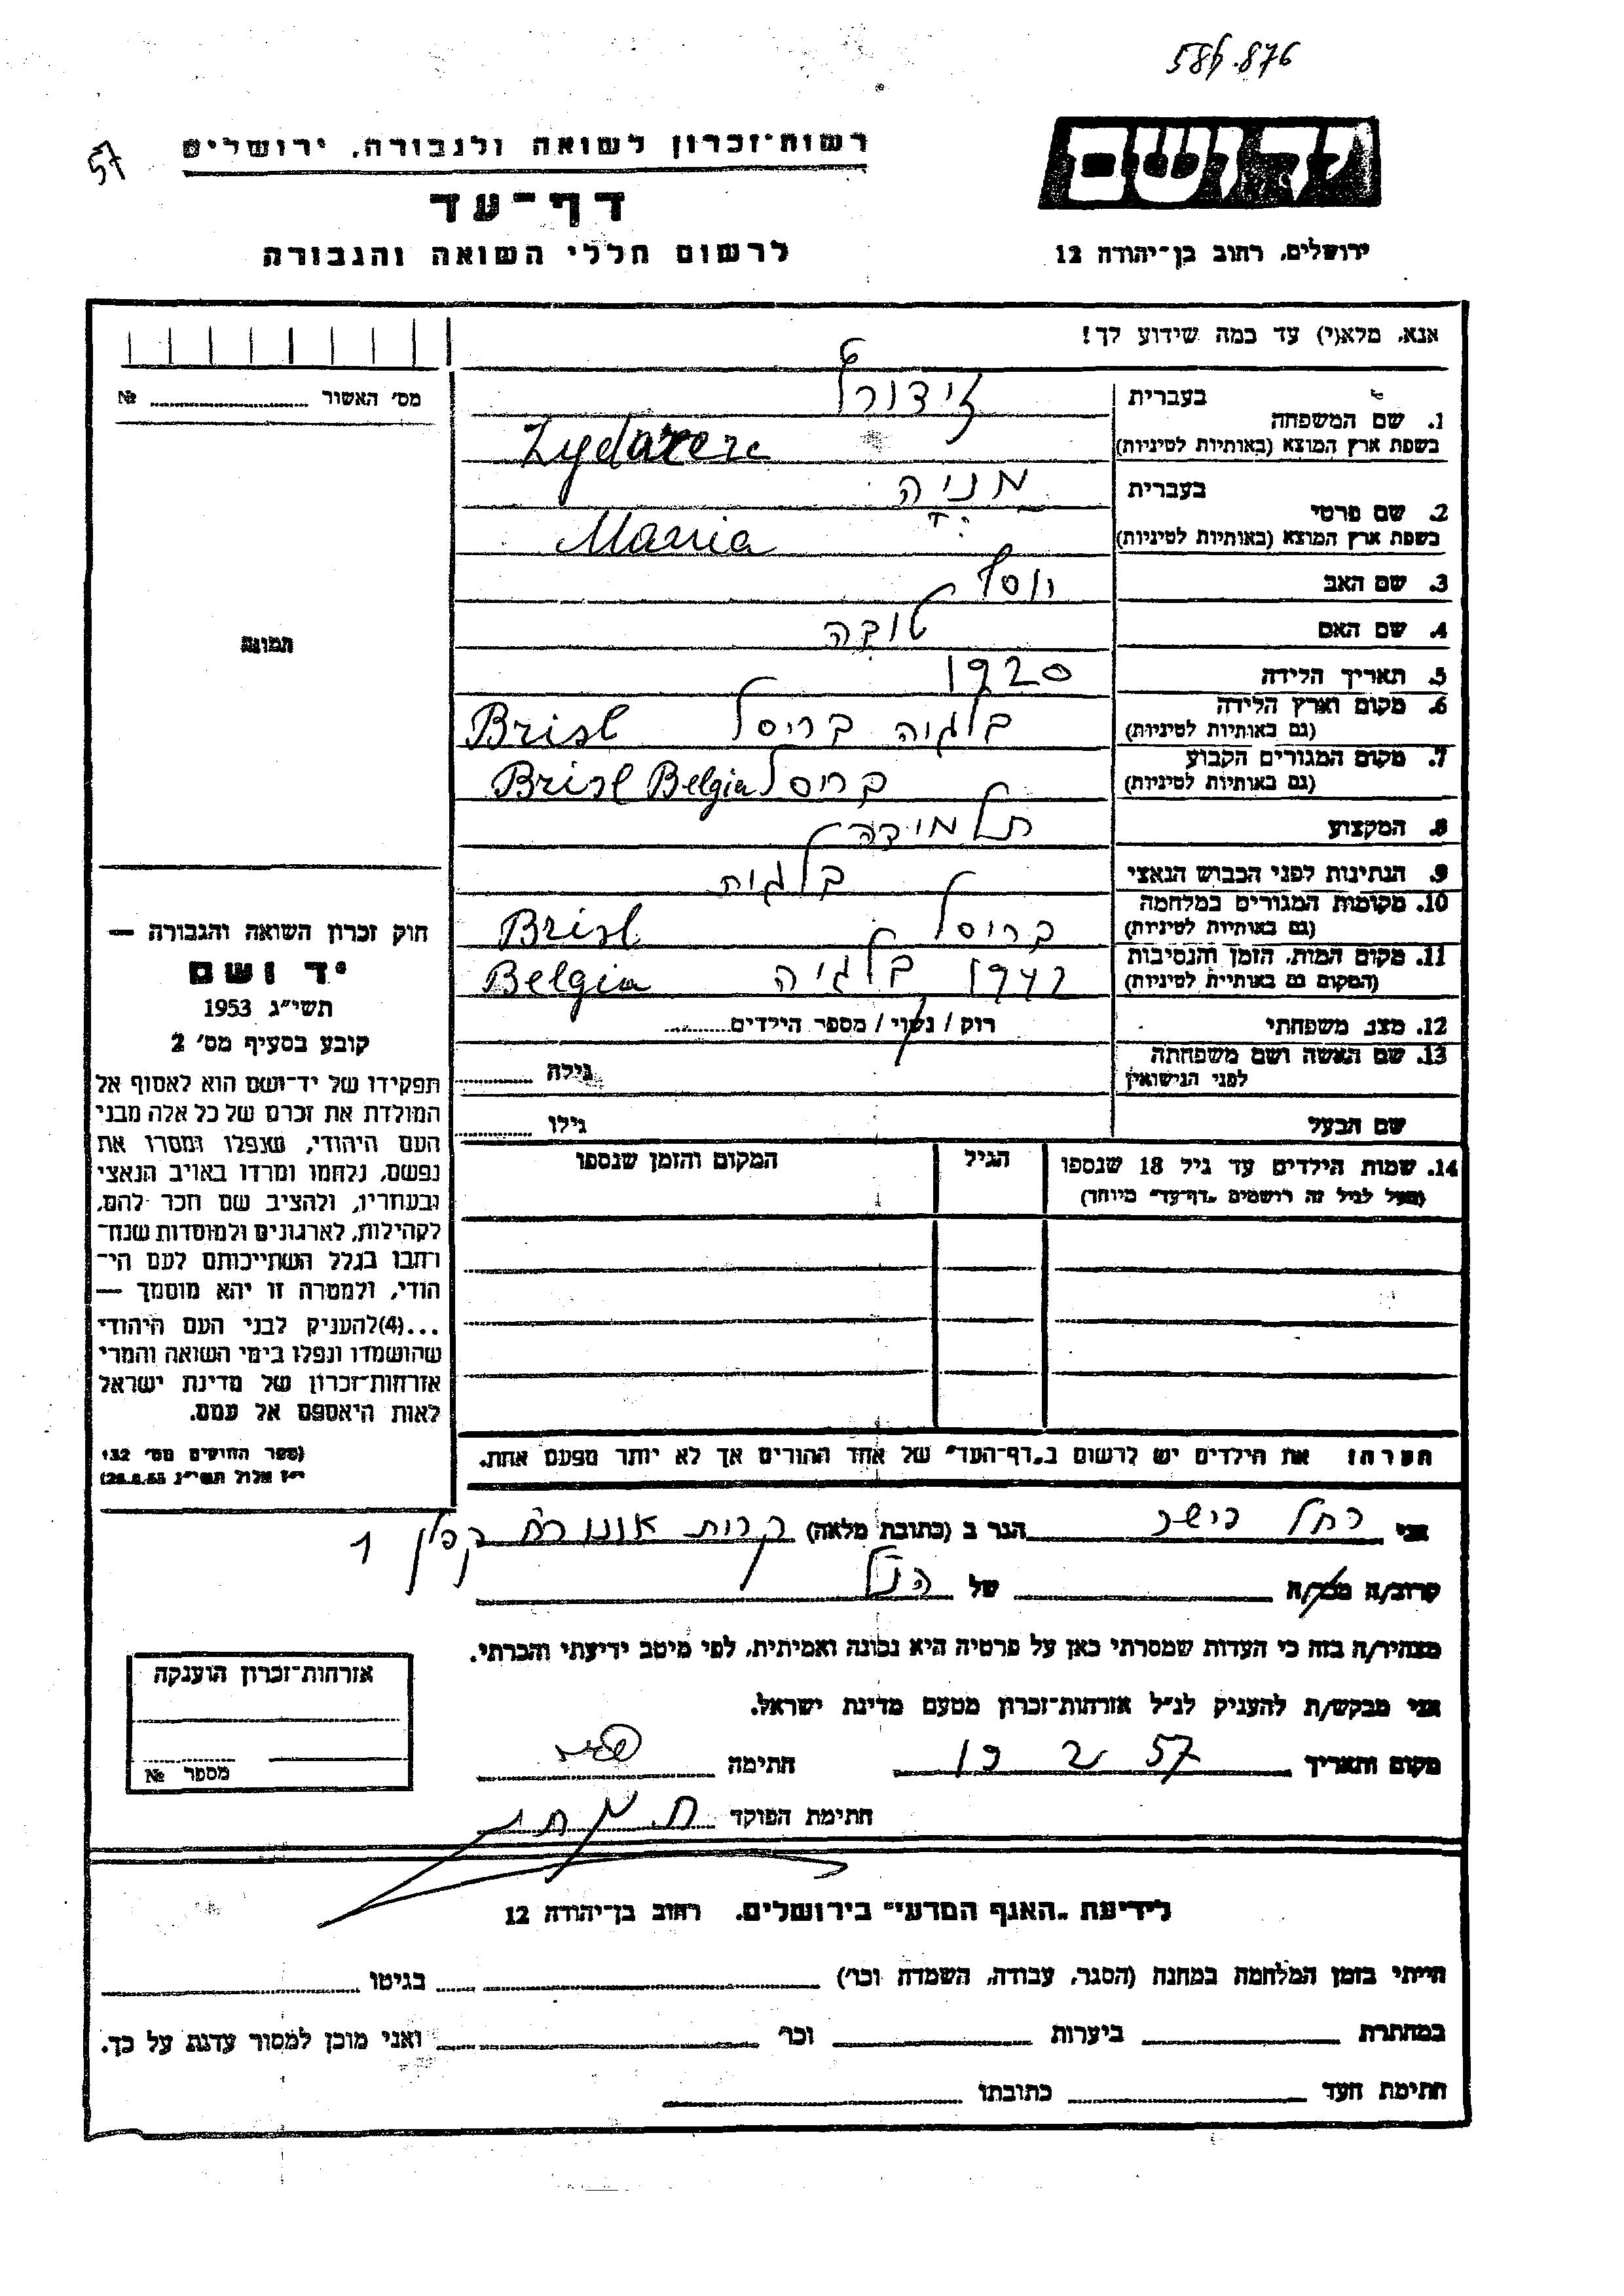 584.876
57
רשות־זכרון לשואה ולגבורה, ירושלים
יד ושם
דף־עד
לרשום חללי השואה והגבורה
ירושלים, רחוב בן־יהודה 12
אנא, מלא(י) עד כמה שידוע לך!
מס׳ האשור №
1. שם המשפחה
בעברית
בשפת ארץ המוצא (באותיות לטיניות)
2. שם פרטי
בעברית מניה
בשפת ארץ המוצא (באותיות לטיניות) Mania
3. שם האב יוסף
4. שם האם טובה
5. תאריך הלידה 1920
6. מקום וארץ הלידה (גם באותיות לטיניות) בלגיה בריסל Brisl
7. מקום המגורים הקבוע (גם באותיות לטיניות) בריסל Brisl Belgia
8. המקצוע תלמידה
9. הנתינות לפני הכבוש הנאצי בלגית
10. מקומות המגורים במלחמה (גם באותיות לטיניות) בריסל Brisl
11. מקום המות, הזמן והנסיבות (המקום גם באותיות לטיניות) 1942 בלגיה Belgia
12. מצב משפחתי רוק / נשוי / מספר הילדים
13. שם האשה ושם משפחתה לפני הנישואין גילה
שם הבעל גילו
14. שמות הילדים עד גיל 18 שנספו
(מעל לגיל זה רושמים „דף־עד״ מיוחד)
הגיל
המקום והזמן שנספו
הערה: את הילדים יש לרשום ב„דף־העד״ של אחד ההורים אך לא יותר מפעם אחת.
תמונה
חוק זכרון השואה והגבורה —
יד ושם
תשי״ג 1953
קובע בסעיף מס׳ 2
תפקידו של יד־ושם הוא לאסוף אל
המולדת את זכרם של כל אלה מבני
העם היהודי, שנפלו ומסרו את
נפשם, נלחמו ומרדו באויב הנאצי
ובעוזריו, ולהציב שם וזכר להם,
לקהילות, לארגונים ולמוסדות שנח־
רבו בגלל השתייכותם לעם הי־
הודי, ולמטרה זו יהא מוסמך —
...(4)להעניק לבני העם היהודי
שהושמדו ונפלו בימי השואה והמרי
אזרחות־זכרון של מדינת ישראל
לאות היאספם אל עמם.
(ספר החוקים מס׳ 132
י״ז אלול תשי״ג 28.8.53)
אני רחל פישר הגר ב (כתובת מלאה) קרית אונו קפלן 1
קרוב/ה מכר/ה של הנ״ל
מצהיר/ה בזה כי העדות שמסרתי כאן על פרטיה היא נכונה ואמיתית, לפי מיטב ידיעתי והכרתי.
אני מבקש/ת להעניק לנ״ל אזרחות־זכרון מטעם מדינת ישראל.
מקום ותאריך 57 חתימה
חתימת הפוקד
אזרחות־זכרון הוענקה
מספר №
לידיעת „האגף המדעי״ בירושלים, רחוב בן־יהודה 12
הייתי בזמן המלחמה במחנה (הסגר, עבודה, השמדה וכו׳) בגיטו
במחתרת ביערות וכו׳ ואני מוכן למסור עדות על כך.
חתימת העד כתובתו